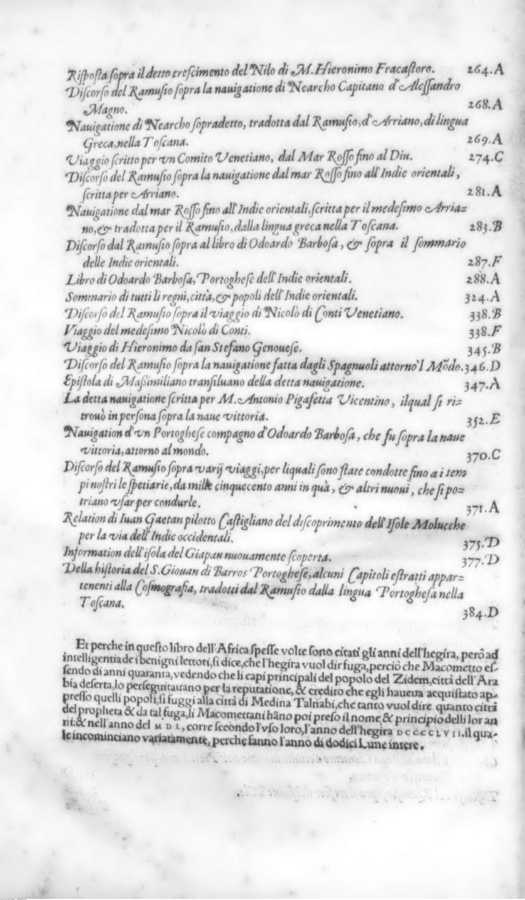 Risposta sopra il detto crescimento del Nilo di M. Hieronimo Fracastoro. 264.A
Discorso del Ramusio sopra la nauigatione di Nearcho Capitano d'Alessandro
Magno. 268.A
Nauigatione di Nearcho sopradetto, tradotta dal Ramusio, d'Arriano, di lingua
Greca, nella Toscana. 269.A
Viaggio scritto per vn Comito Venetiano, dal Mar Rosso fino al Diu. 274.C
Discorso del Ramusio sopra la nauigatione dal mar Rosso fino all'Indie orientali,
scritta per Arriano. 281.A
Nauigatione dal mar Rosso fino all'Indie orientali, scritta per il medesimo Arria-
no, & tradotta per il Ramusio, dalla lingua greca nella Toscana. 283.B
Discorso dal Ramusio sopra al libro di Odoardo Barbosa, & sopra il sommario
delle Indie orientali. 287.F
Libro di Odoardo Barbosa, Portoghese dell'Indie orientali. 288.A
Sommario di tutti li regni, città, & popoli dell'Indie orientali. 324.A
Discorso del Ramusio sopra il viaggio di Nicolò di Conti Venetiano. 338.B
Viaggio del medesimo Nicolò di Conti. 338.F
Viaggio di Hieronimo da san Stefano Genouese. 345.B
Discorso del Ramusio sopra la nauigatione fatta dagli Spagnuoli attorno'l Mōdo. 346.D
Epistola di Massimiliano transiluano della detta nauigatione. 347.A
La detta nauigatione scritta per M. Antonio Pigafetta Vicentino, ilqual si ri-
trouò in persona sopra la naue vittoria. 352.E
Nauigation d'vn Portoghese compagno d'Odoardo Barbosa, che fu sopra la naue
vittoria, attorno al mondo. 370.C
Discorso del Ramusio sopra varij viaggi, per liquali sono state condotte fino a i tem
pi nostri le spetiarie, da mille cinquecento anni in quà, & altri nuoui, che si po-
triano vsar per condurle. 371.A
Relation di Iuan Gaetan pilotto Castigliano del discoprimento dell'Isole Molucche
per la via dell'Indie occidentali. 375.D
Information dell'isola del Giapan nuouamente scoperta. 377.D
Della historia del S. Giouan di Barros Portoghese, alcuni Capitoli estratti appar-
tenenti alla Cosmografia, tradotti dal Ramusio dalla lingua Portoghesa nella
Toscana. 384.D
Et perche in questo libro dell'Africa spesse volte sono citati gli anni dell'hegira, però ad
intelligentia de i benigni lettori, si dice, che l'hegira vuol dir fuga, perciò che Macometto es-
sendo di anni quaranta, vedendo che li capi principali del popolo del Zidem, città dell'Ara
bia deserta, lo perseguitauano per la reputatione, & credito che egli haueua acquistato ap-
presso quelli popoli, si fuggi alla città di Medina Talnabi, che tanto vuol dire quanto città
del propheta & da tal fuga, li Macomettani hāno poi preso il nome & principio delli lor an
ni. & nell'anno del MDL, corre secondo l'vso loro, l'anno dell'hegira DCCCCLVII. il qua-
le incominciano variatamente, perche fanno l'anno di dodici Lune intere.